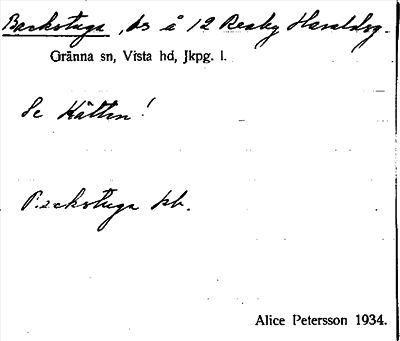 Backstuga, ds å 12 Reaby Haraldsg.
Gränna sn, Vista hd, Jkpg. l.
Se Kätten!
Backstuga kb.
Alice Petersson 1934.